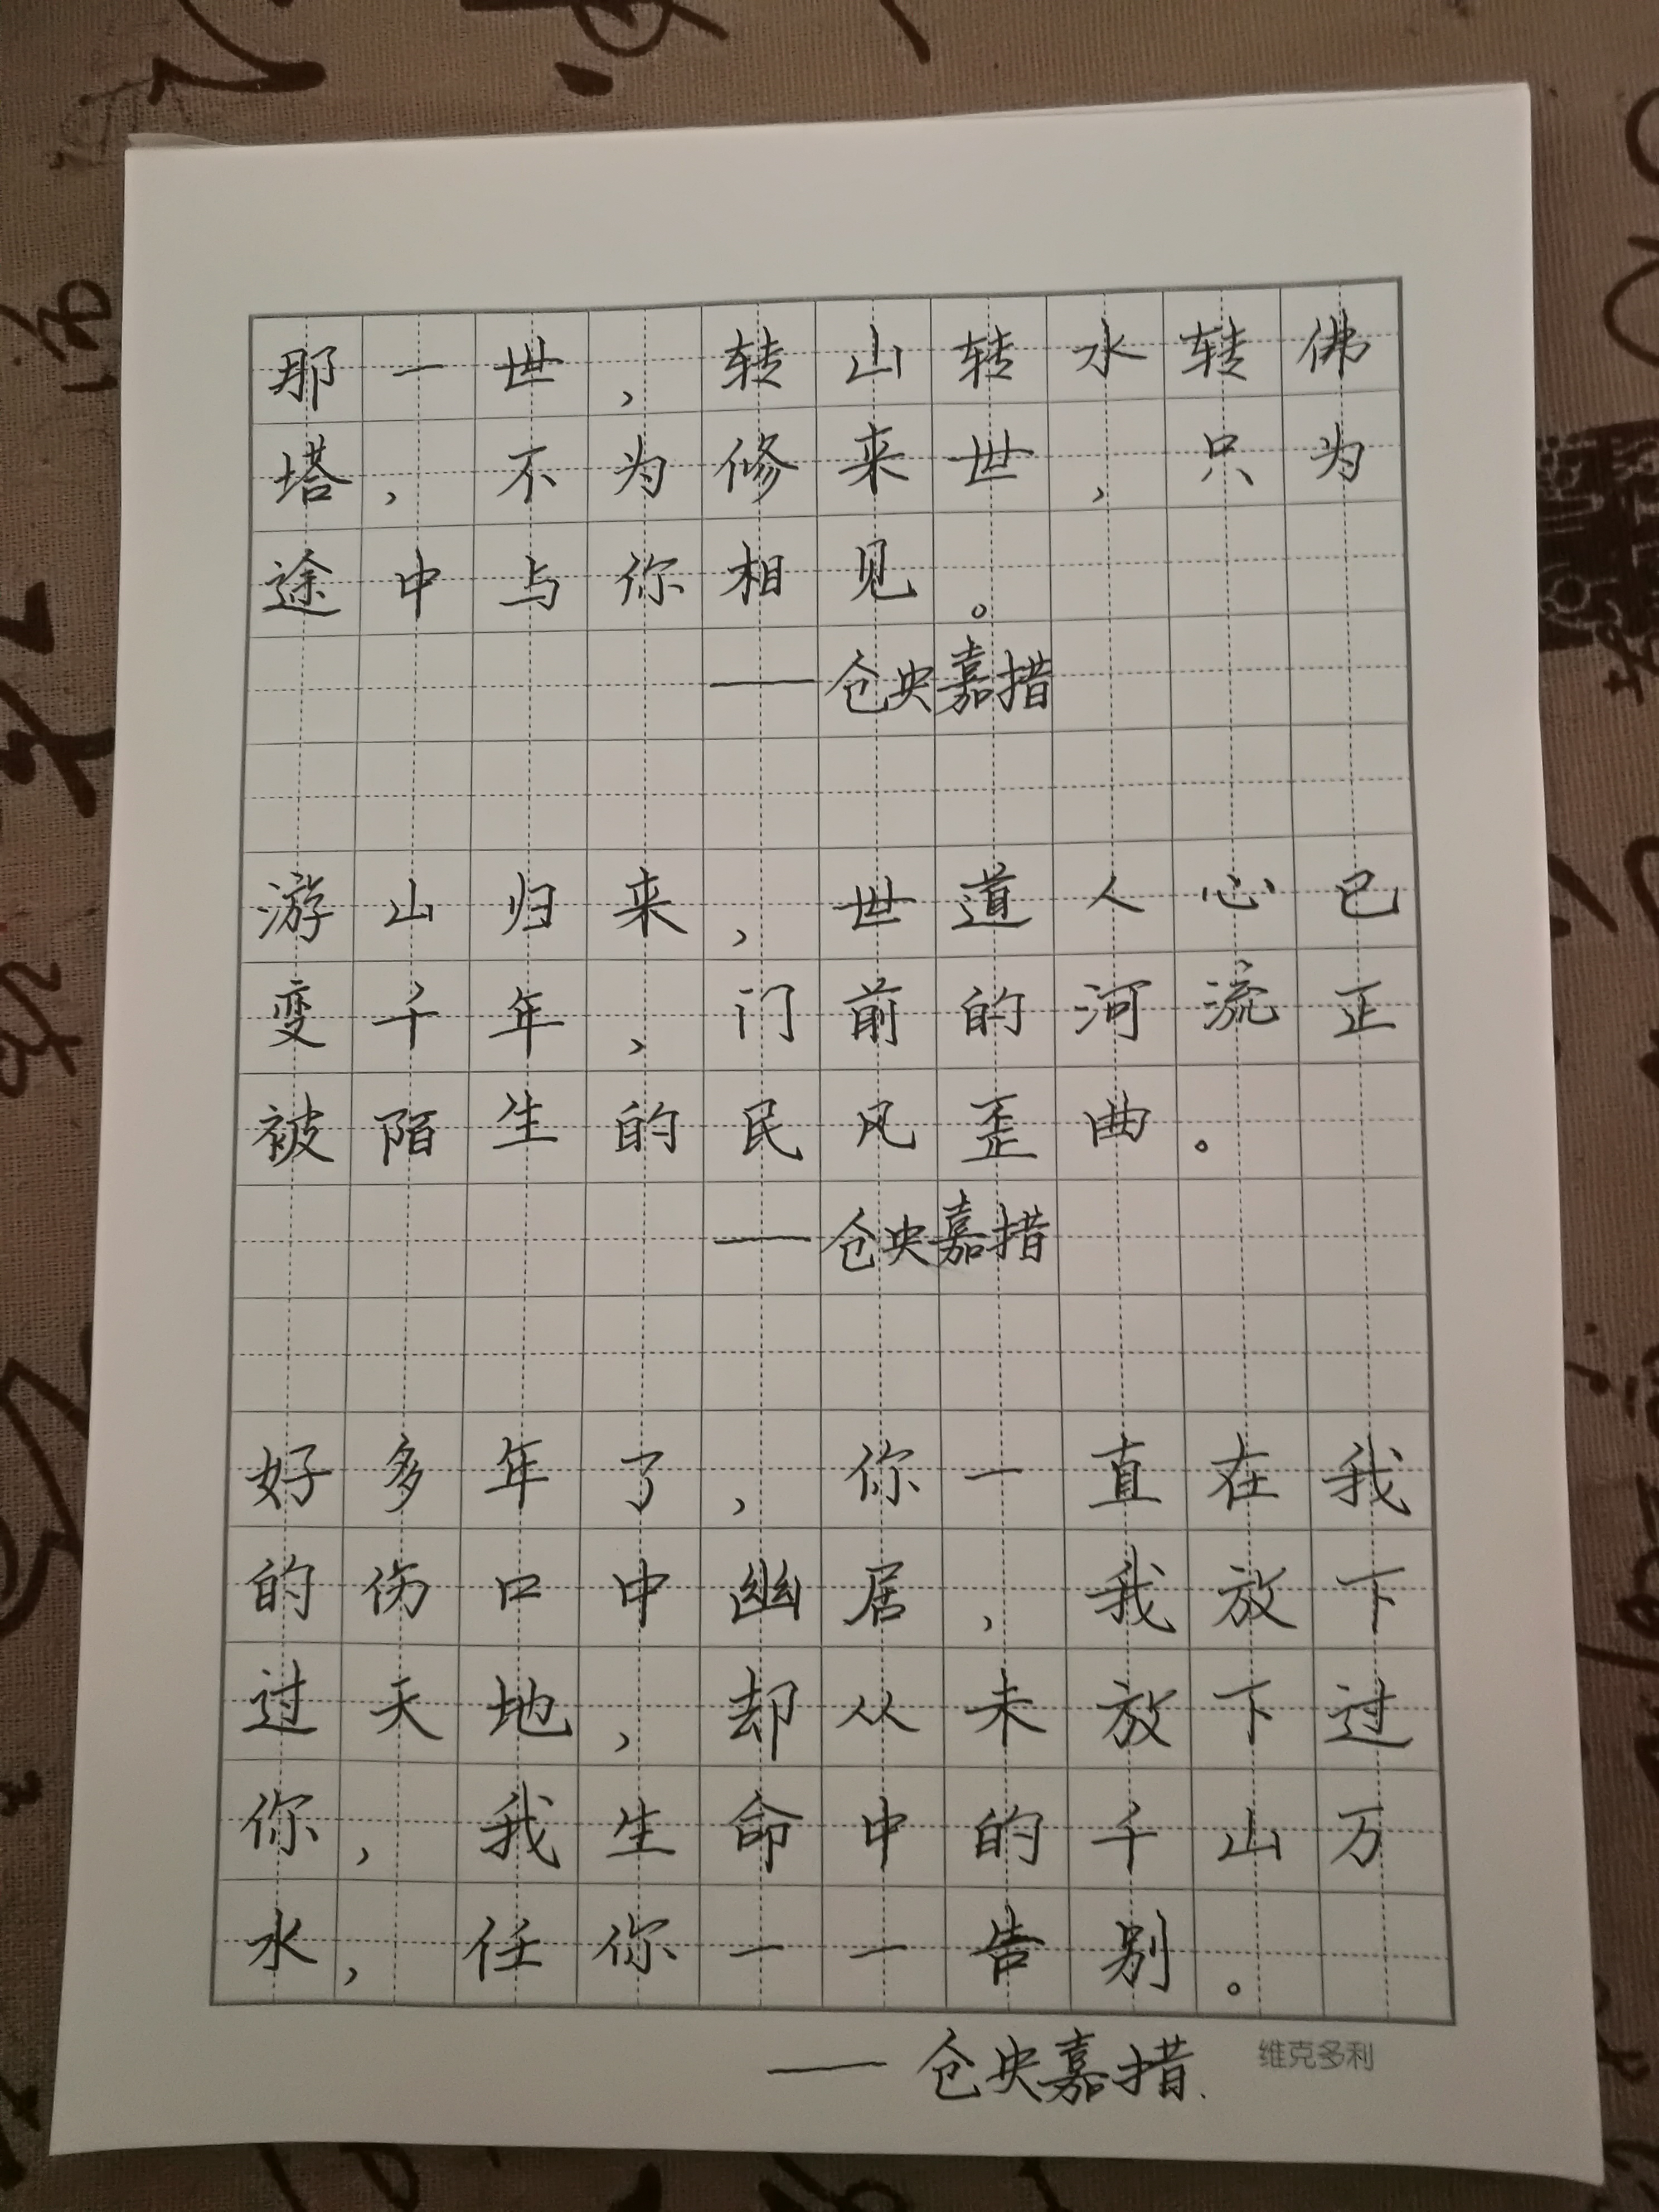 那一世，转山转水转佛
塔，不为修来世，只为
途中与你相见。
——仓央嘉措
游山归来，世道人心已
变千年，门前的河流正
被陌生的民风歪曲。
——仓央嘉措
好多年了，你一直在我
的伤口中幽居，我放下
过天地，却从未放下过
你，我生命中的千山万
水，任你一一告别。
——仓央嘉措.
维克多利